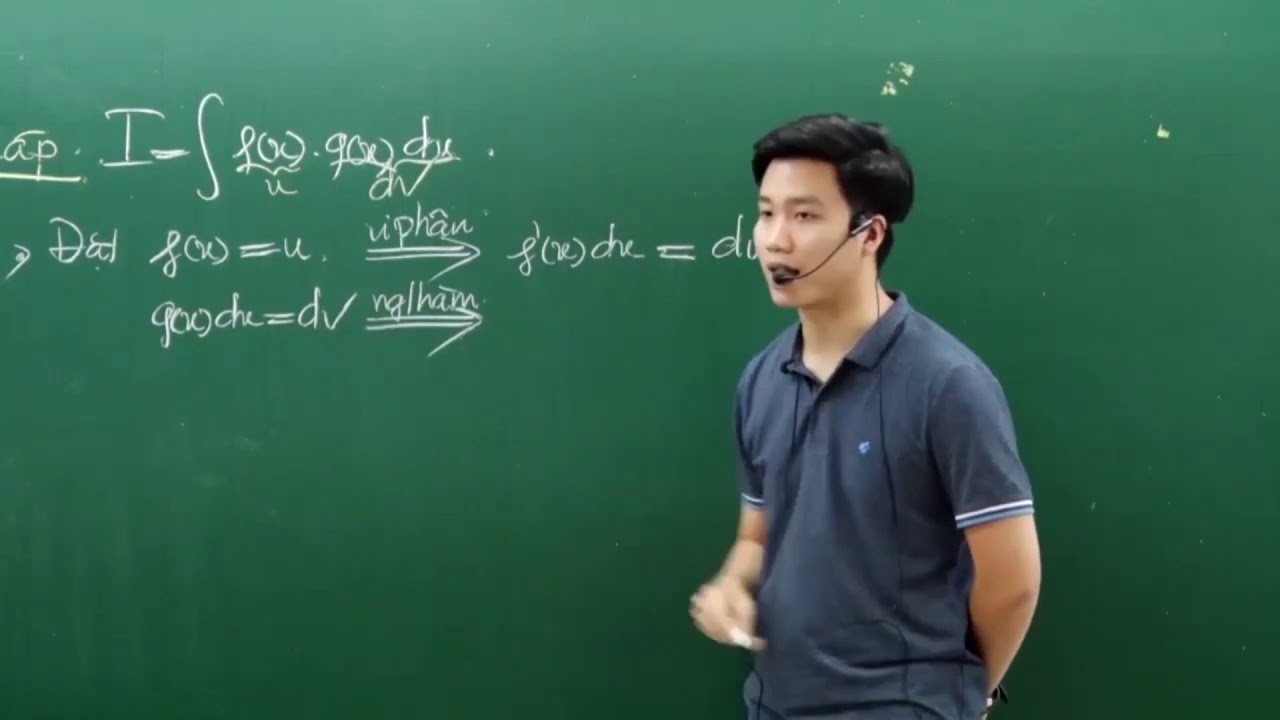 I = ∫ f(x) . g(x) dx .
u dv
Đặt f(x) = u . vi phân ⟹ f'(x) dx = du
g(x) dx = dv ng/hàm ⟹